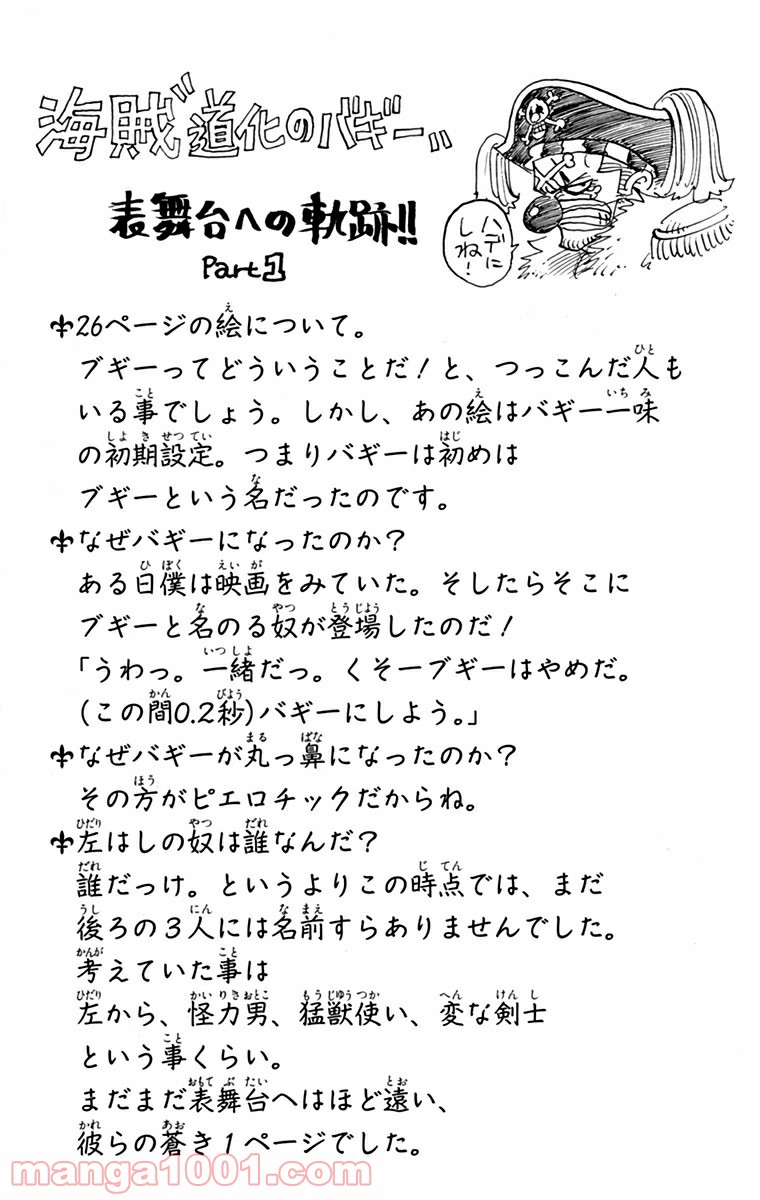 海賊“道化のバギー”
表舞台への軌跡!!
Part1
ハデに
しね!
26ページの絵について。
ブギーってどういうことだ!と、つっこんだ人も
いる事でしょう。しかし、あの絵はバギー一味
の初期設定。つまりバギーは初めは
ブギーという名だったのです。
なぜバギーになったのか?
ある日僕は映画をみていた。そしたらそこに
ブギーと名のる奴が登場したのだ!
「うわっ。一緒だっ。くそーブギーはやめだ。
(この間0.2秒)バギーにしよう。」
なぜバギーが丸っ鼻になったのか?
その方がピエロチックだからね。
左はしの奴は誰なんだ?
誰だっけ。というよりこの時点では、まだ
後ろの3人には名前すらありませんでした。
考えていた事は
左から、怪力男、猛獣使い、変な剣士
という事くらい。
まだまだ表舞台へはほど遠い、
彼らの蒼き1ページでした。
manga1001.com